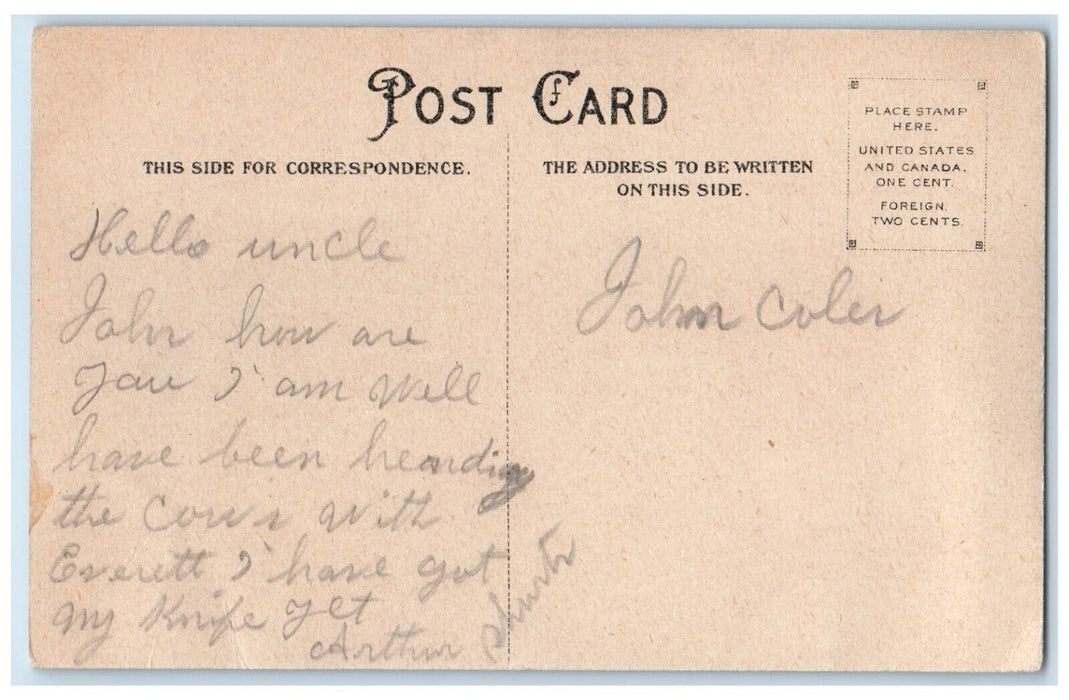 POST CARD
THIS SIDE FOR CORRESPONDENCE.
THE ADDRESS TO BE WRITTEN
ON THIS SIDE.
PLACE STAMP
HERE.
UNITED STATES
AND CANADA.
ONE CENT.
FOREIGN.
TWO CENTS.
Hello uncle
John how are
you I am well
have been hearding
the cows with
Everett I have got
my knife yet
Arthur
John Coler